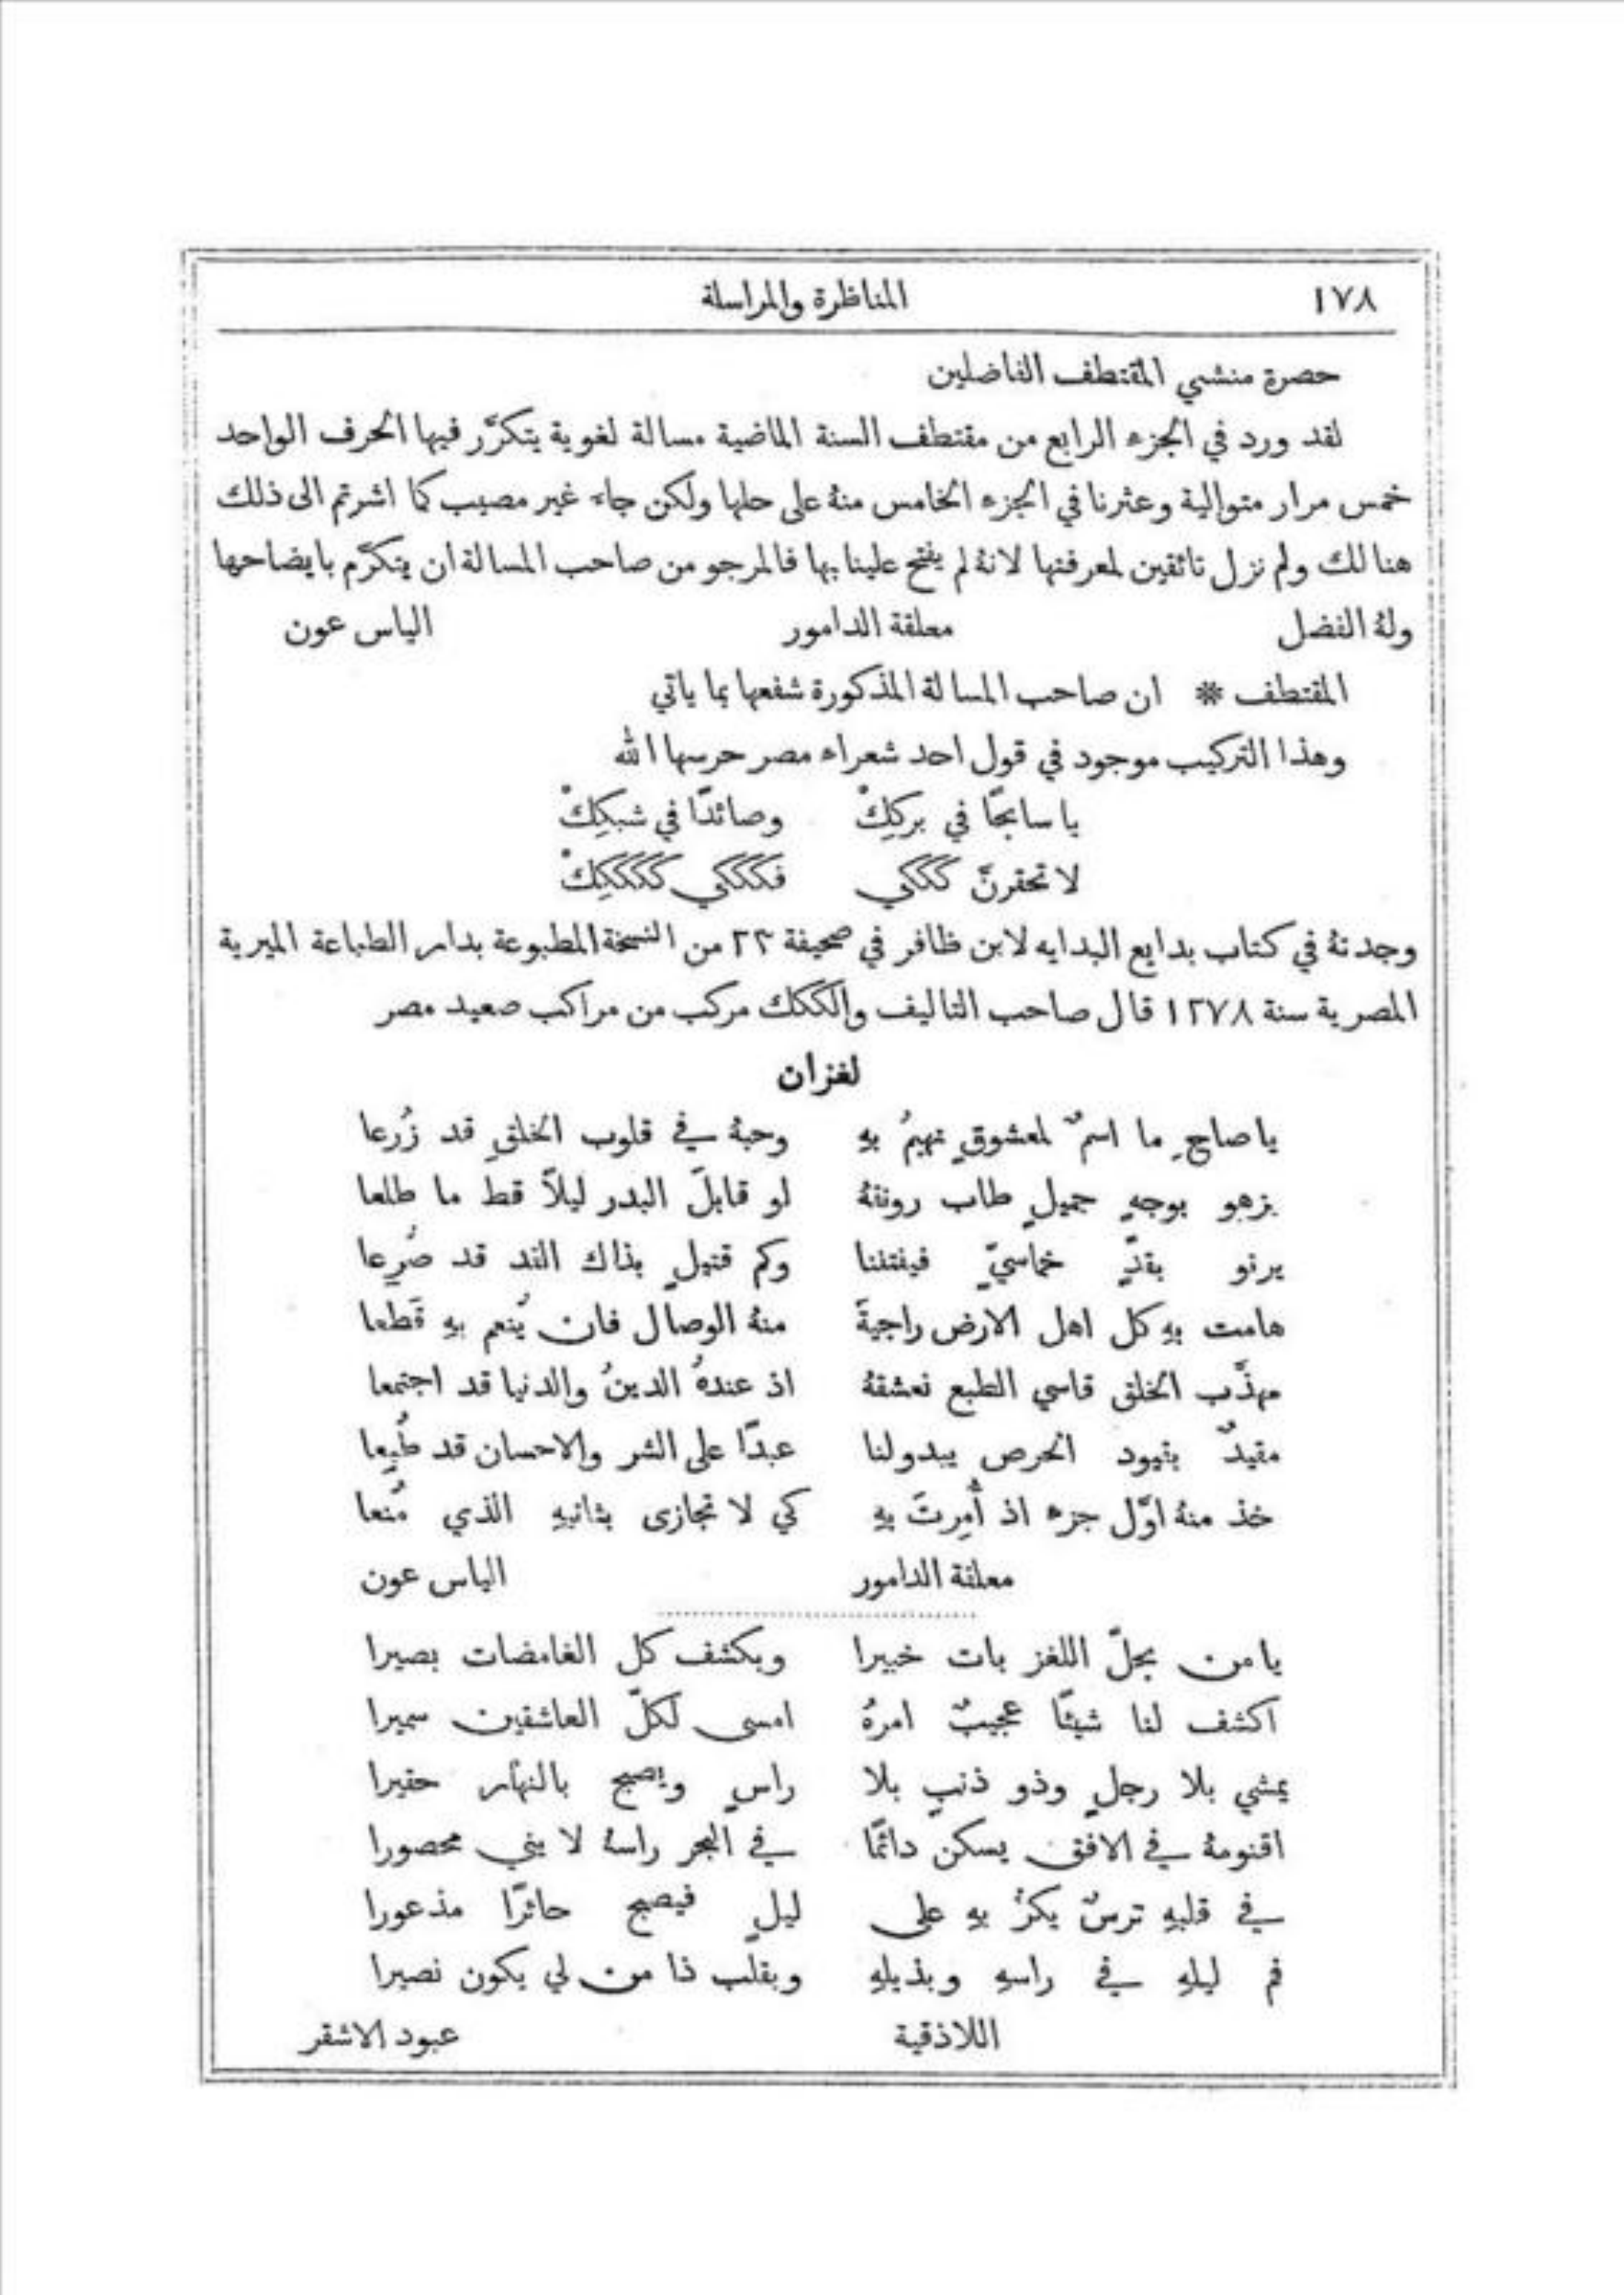 ١٧٨ المناظرة والمراسلة
حضرة منشي المقتطف الفاضلين
لقد ورد في الجزء الرابع من مقتطف السنة الماضية مسالة لغوية يتكرَّر فيها الحرف الواحد
خمس مرار متوالية وعثرنا في الجزء الخامس منهُ على حلها ولكن جاء غير مصيب كما اشرتم الى ذلك
هنالك ولم نزل تائقين لمعرفتها لانهُ لم يفتح علينا بها فالمرجو من صاحب المسالة ان يتكرَّم بايضاحها
ولهُ الفضل معلقة الدامور الياس عون
المقتطف * ان صاحب المسالة المذكورة شفعها بما ياتي
وهذا التركيب موجود في قول احد شعراء مصر حرسها الله
يا سابحًا في بركِكْ وصائدًا في شبكِكْ
لا تحقرنَّ كككي فكككي كككككِكْ
وجدتهُ في كتاب بدايع البدايه لابن ظافر في صحيفة ٢٣ من النسخة المطبوعة بدار الطباعة الميرية
المصرية سنة ١٢٧٨ قال صاحب التاليف والككك مركب من مراكب صعيد مصر
لغزان
يا صاحِ ما اسمٌ لمعشوقٍ نهيمُ بهِ وحبهُ في قلوب الخلقِ قد زُرعا
يزهو بوجهٍ جميلٍ طاب رونقهُ لو قابلَ البدر ليلاً قط ما طلعا
يرنو بقدٍّ خماسيٍّ فيفتننا وكم قتيلٍ بذاك القد قد صُرِعا
هامت بهِ كل اهل الارض راجيةً منهُ الوصال فان يُنعم بهِ قَطعا
مهذَّب الخلق قاسي الطبع نعشقهُ اذ عندهُ الدينُ والدنيا قد اجتمعا
مقيدٌ بقيود الحرص يبدو لنا عبدًا على الشر والاحسان قد طُبِعا
خذ منهُ اوَّل جزء اذ أُمِرتَ بهِ كي لا تجازى بثانيهِ الذي مُنعا
معلقة الدامور الياس عون
يا من بحلّ اللغز بات خبيرا وبكشف كل الغامضات بصيرا
اكشف لنا شيئًا عجيبٌ امرهُ امسى لكلّ العاشقين سميرا
يمشي بلا رجلٍ وذو ذنبٍ بلا راسٍ ويصبح بالنهار حقيرا
اقنومهُ في الافق يسكن دائمًا في البحر راسهُ لا يني محصورا
في قلبهِ ترسٌ يكرُّ بهِ على ليلٍ فيصبح حائرًا مذعورا
فم ليلهِ في راسهِ وبذيلهِ وبقلب ذا من لي يكون نصيرا
اللاذقية عبود الاشقر